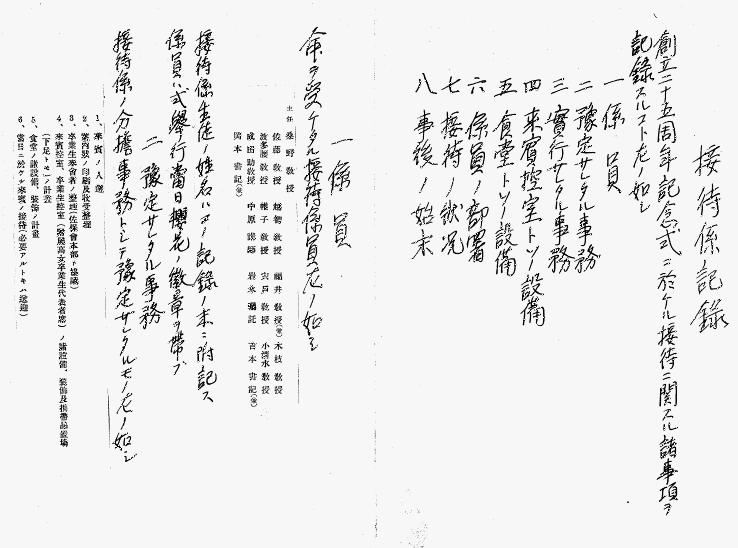 接待係ノ記録
創立二十五周年記念式ニ於ケル接待ニ関スル諸事項ヲ
記録スルコト左ノ如シ
一 係員
二 豫定サレタル事務
三 實行サレタル事務
四 来賓控室トソノ設備
五 食堂トソノ設備
六 係員ノ部署
七 接待ノ状况
八 事後ノ始末
一 係員
命ヲ受ケタル接待係員左ノ如シ
主任 桑野教授
佐藤教授 越智教授 福井教授 水枝教授
波多腰教授 雑子教授 宍戸教授 小清水教授
成田助教授 中原講師 岩永囑託 吉本書記
岡本書記
接待係生徒ノ姓名ハコノ記録ノ末ニ附記ス
係員ハ式擧行當日櫻花ノ徽章ヲ帶ブ
二 豫定サレタル事務
接待係ノ分擔事務トシテ豫定サレタルモノ左ノ如シ
1、來賓ノ人選
2、案内狀ノ印刷及收受整理
3、卒業生來會者ノ整理(佐保會本部ト協議)
4、來賓控室、卒業生控室ノ諸設備、裝飾及携帶品置場
(下足トモ)ノ計畫
5、食堂ノ諸設備、裝飾ノ計畫
6、當日ニ於ケル來賓ノ接待(必要アルトキハ送迎)